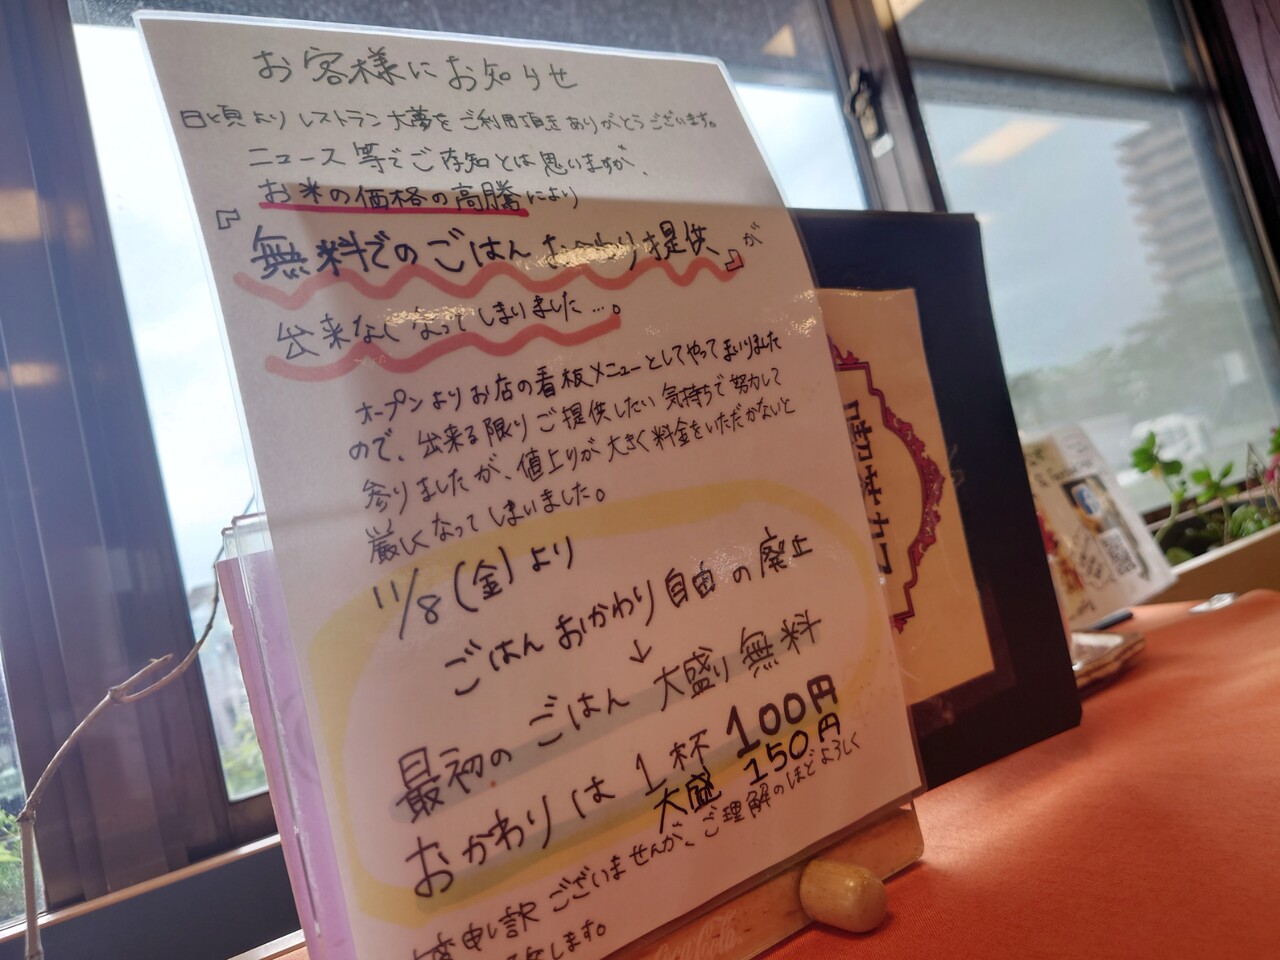 お客様にお知らせ
日頃よりレストラン大夢をご利用頂きありがとうございます。
ニュース等でご存知とは思いますが、
お米の価格の高騰により
『無料でのごはんおかわり提供』が
出来なくなってしまいました…。
オープンよりお店の看板メニューとしてやってまいりました
ので、出来る限りご提供したい気持ちで努力して
参りましたが、値上りが大きく料金をいただかないと
厳しくなってしまいました。
11/8(金)より
ごはんおかわり自由の廃止
↓
最初のごはん大盛り無料
おかわりは1杯100円
大盛150円
申し訳ございませんが、ご理解のほどよろしく
します。
Coca-Cola